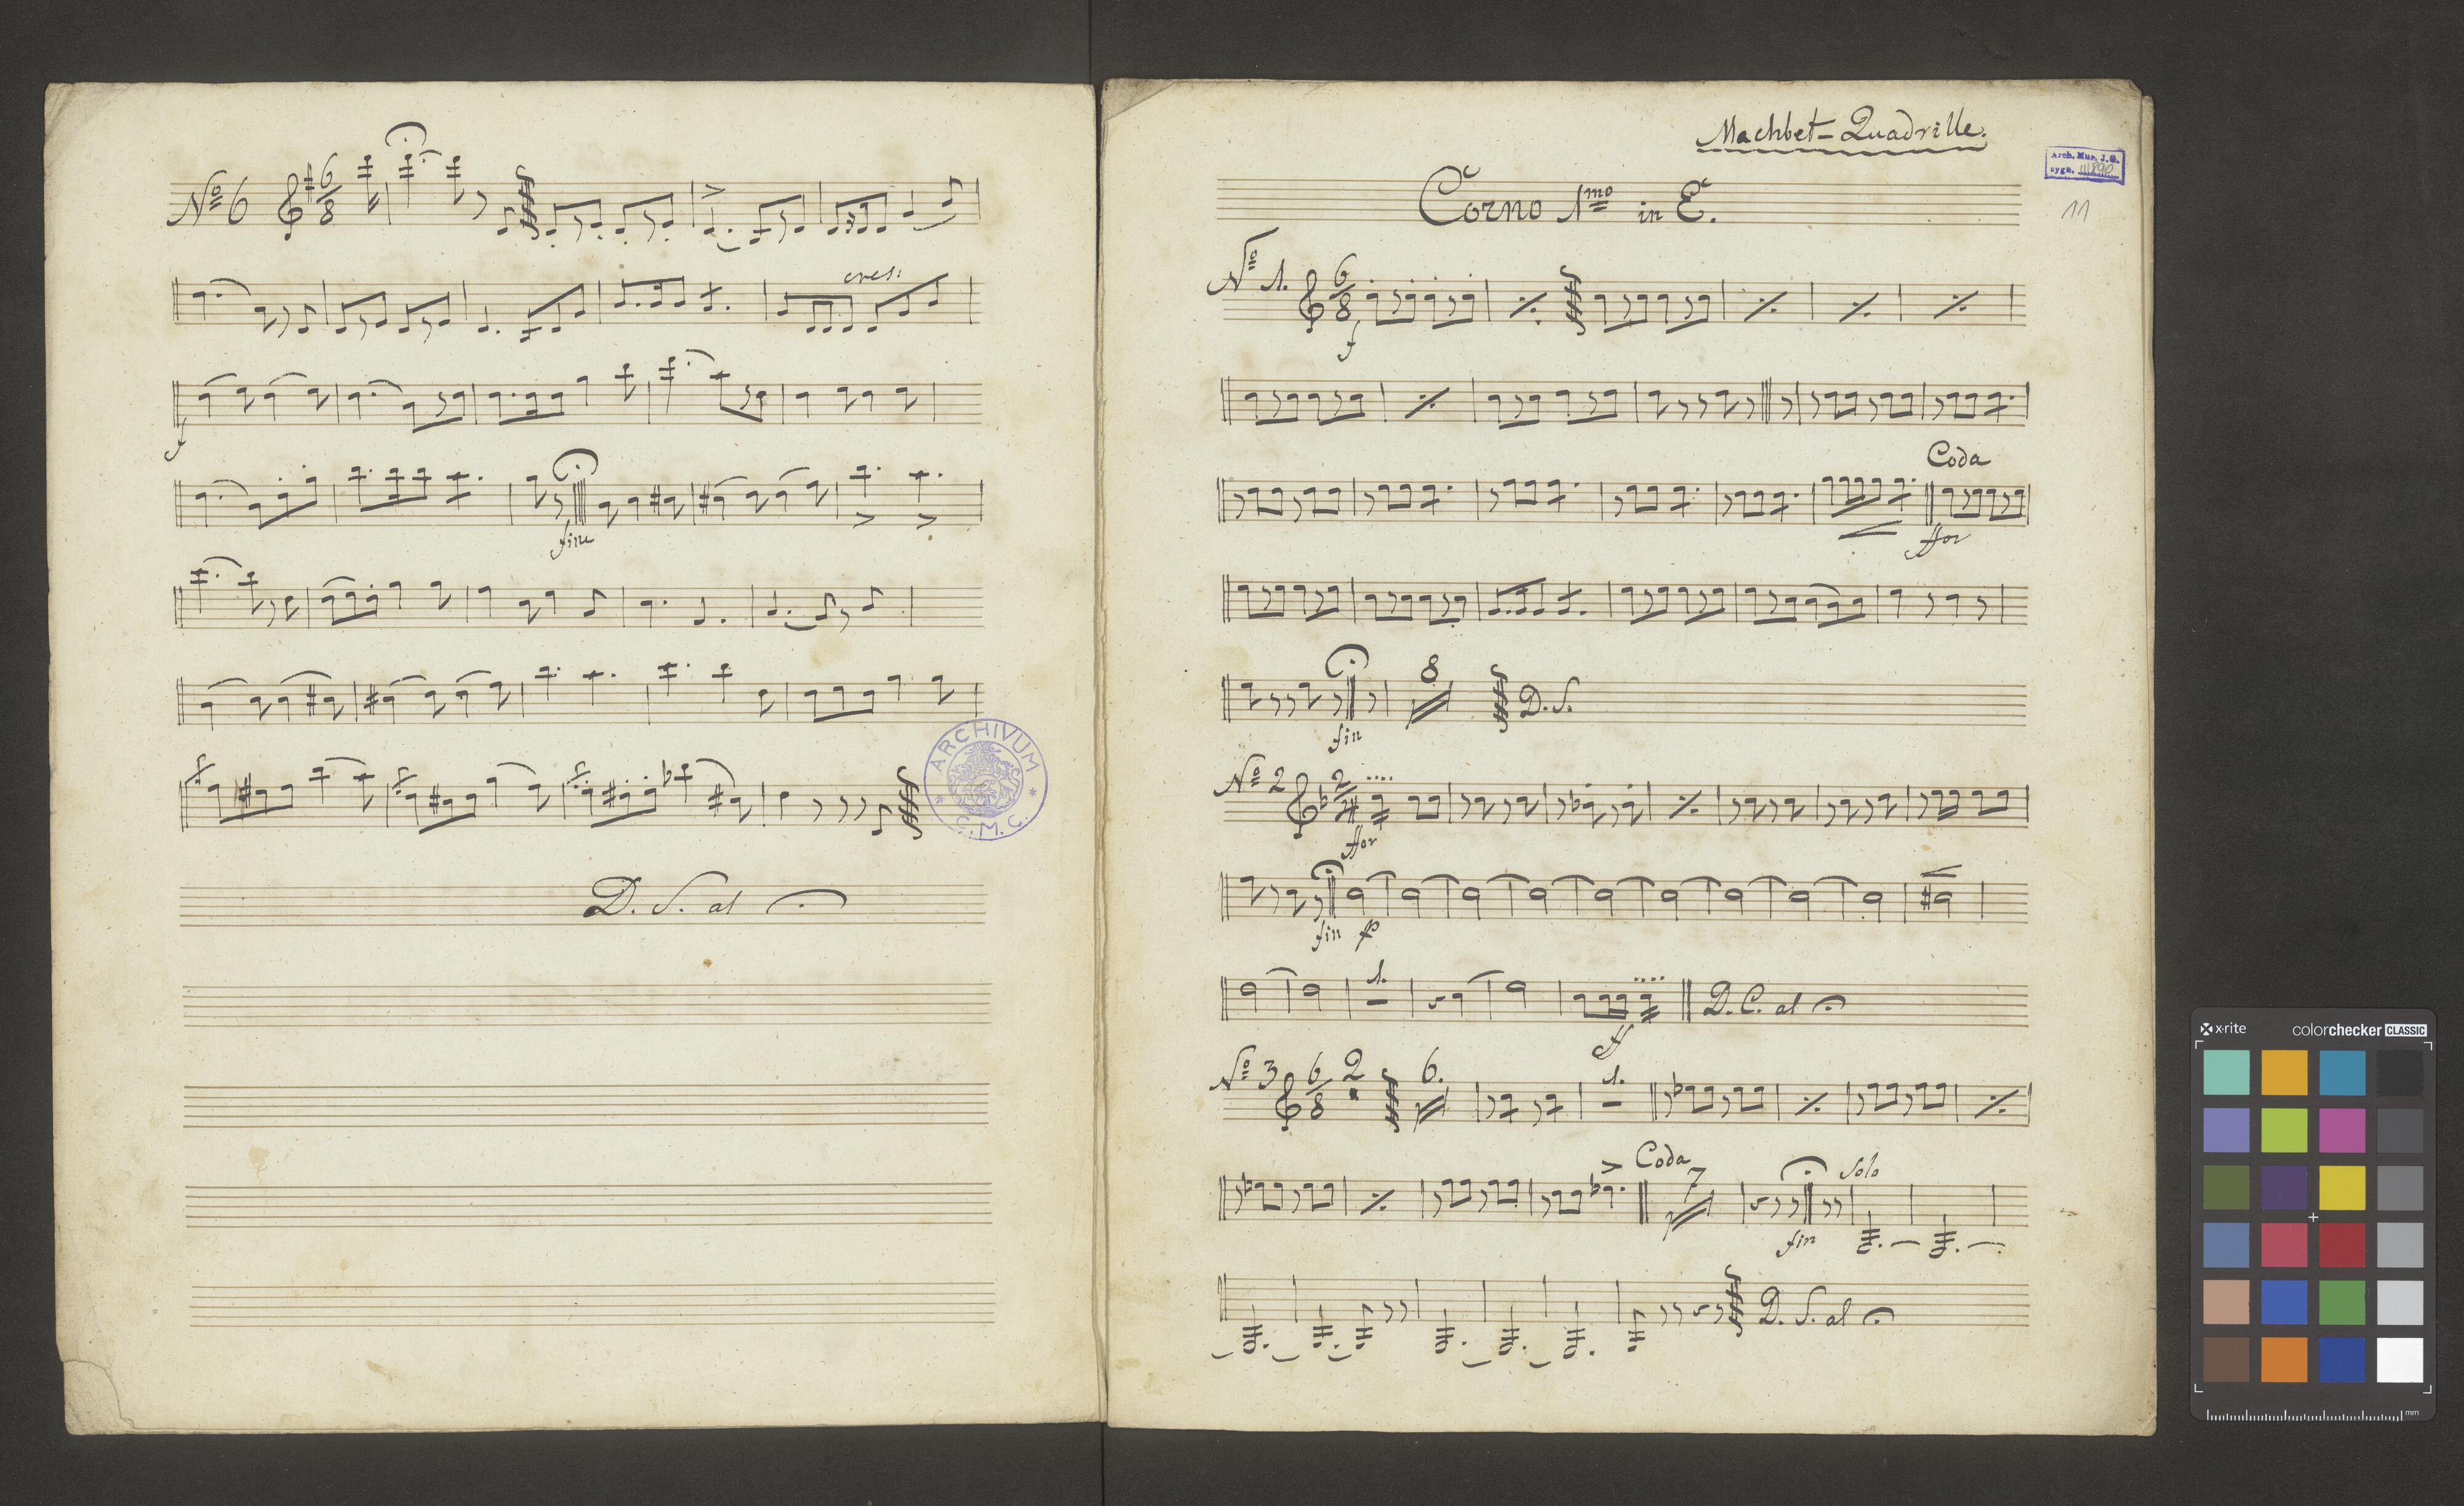 Nº 6 6/8
cres:
f
fine
ARCHIVUM
C. M. C.
D. S. al
Machbet-Quadrille.
Arch. Mus. J.G.
sygn.
11
Corno 1mo in E.
Nº 1. 6/8
f
Coda
ffor
8
fin
D. S.
Nº 2 2/4
ffor
fin p
1.
ff
D. C. al
Nº 3 6/8 2 6. 1.
Coda
7
Solo
fin
D. S. al
x-rite colorchecker CLASSIC
mm